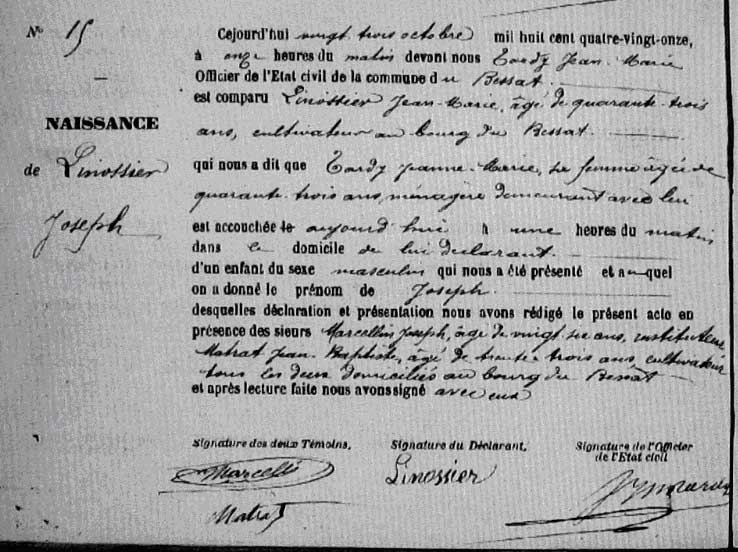 N° 15
NAISSANCE
de Linossier
Joseph
Cejourd'hui vingt trois octobre mil huit cent quatre-vingt-onze,
à onze heures du matin devant nous Tardy Jean-Marie
Officier de l'Etat civil de la commune du Bessat.
est comparu Linossier Jean-Marie, âgé de quarante-trois
ans, cultivateur au bourg du Bessat.
qui nous a dit que Tardy Jeanne-Marie, sa femme âgée de
quarante-trois ans, ménagère demeurant avec lui
est accouchée le aujourd'hui à une heures du matin
dans le domicile de lui déclarant.
d'un enfant du sexe masculin qui nous a été présenté et auquel
on a donné le prénom de Joseph.
desquelles déclaration et présentation nous avons rédigé le présent acte en
présence des sieurs Marcellin Joseph, âgé de vingt six ans, instituteur
Matrat Jean-Baptiste, âgé de trente-trois ans, cultivateur
tous les deux domiciliés au bourg du Bessat
et après lecture faite nous avons signé avec eux
Signature des deux Témoins, Signature du Déclarant, Signature de l'Officier
de l'Etat civil
Linossier
Matrat